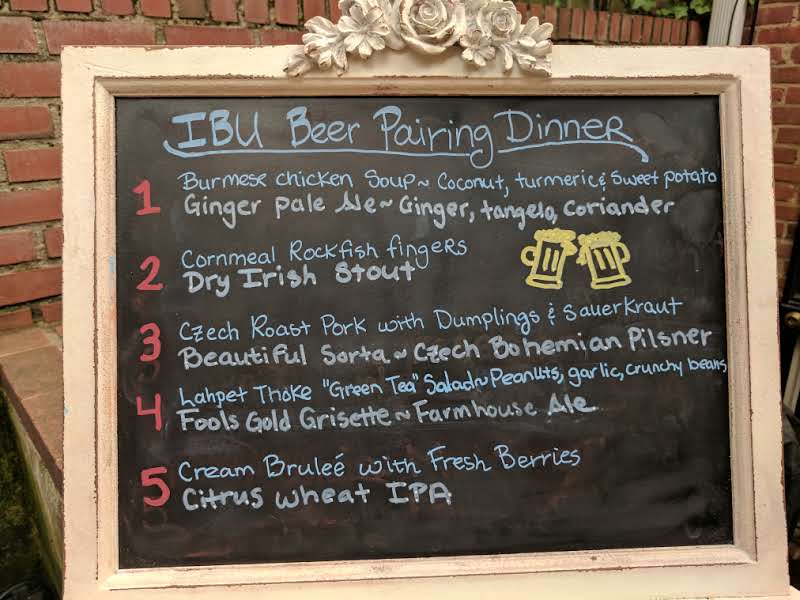 IBU Beer Pairing Dinner
1 Burmese chicken Soup~ Coconut, turmeric & sweet potato
Ginger pale Ale~ Ginger, tangelo, coriander
2 Cornmeal Rockfish fingers
Dry Irish Stout
3 Czech Roast Pork with Dumplings & Sauerkraut
Beautiful Sorta ~ Czech Bohemian Pilsner
4 Lahpet Thoke "Green Tea" Salad~ Peanuts, garlic, crunchy beans
Fools Gold Grisette ~ Farmhouse Ale
5 Cream Bruleé with Fresh Berries
Citrus wheat IPA